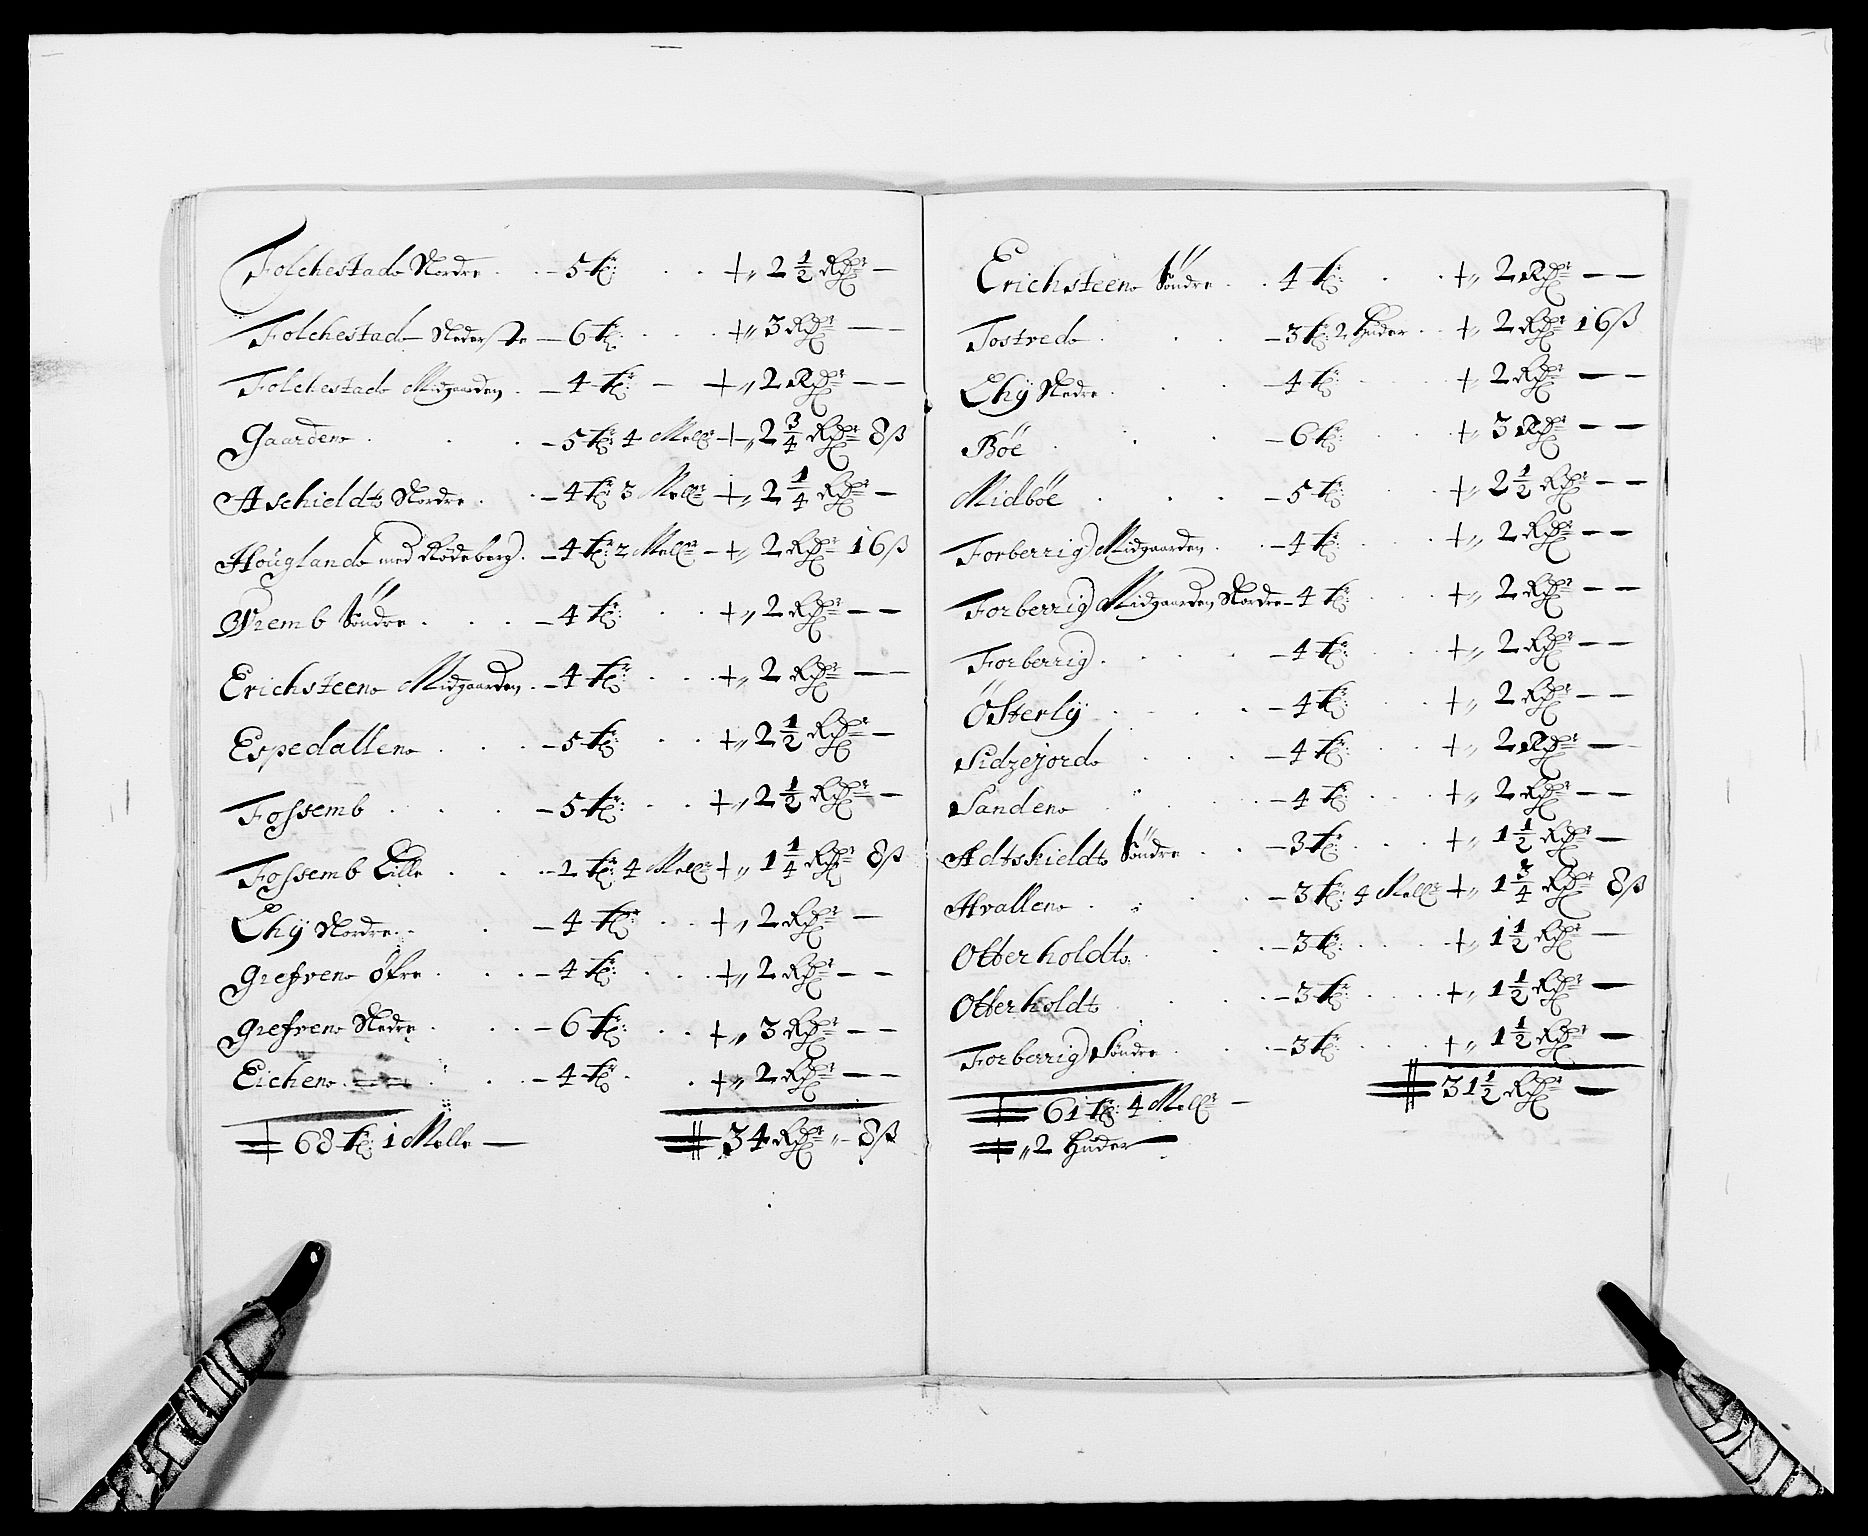 Folchestad Nordre - 5 tr: + „ 2 1/2 Rdr —
Folchestad Nederste - 6 tr: + „ 3 Rdr — —
Folchestad Midgaarden - 4 tr: — + „ 2 Rdr — —
Gaarden - 5 tr: 4 Meler + „ 2 3/4 Rdr 8 ß
Aschieldt Nordre - 4 tr 3 Meler + „ 2 1/4 Rdr —
Hougland med Rødeberg - 4 tr: 2 Meler + „ 2 Rdr 16 ß
Wremb Søndre - 4 tr: + „ 2 Rdr — —
Erichsteen Midgaarden - 4 tr: + „ 2 Rdr — —
Espedallen - 5 tr: + „ 2 1/2 Rdr —
Fossemb - 5 tr: + „ 2 1/2 Rdr —
Fossemb Lille - 2 tr: 4 Meler + „ 1 1/4 Rdr 8 ß
Lhÿ Nordre - 4 tr: + „ 2 Rdr —
Grefven Øfre - 4 tr: + „ 2 Rdr — —
Grefven Nedre - 6 tr: + „ 3 Rdr — —
Eichen - 4 tr: + „ 2 Rdr — —
68 tr: 1 Melle — 34 Rdr „ - 8 ß
Erichsteen Søndre 4 tr: + „ 2 Rdr — —
Tostred - 3 tr: 2 Huder + „ 2 Rdr 16 ß
Lhÿ Nedre - 4 tr: + „ 2 Rdr — —
Böe - 6 tr: + „ 3 Rdr — —
Midböe - 5 tr: + „ 2 1/2 Rdr — —
Forberrig Midgaarden - 4 tr: + „ 2 Rdr — —
Forberrig Midgaarden Nordre - 4 tr: + „ 2 Rdr — —
Forberrig - 4 tr: + „ 2 Rdr — —
Österlÿ - 4 tr: + „ 2 Rdr — —
Sidzejord - 4 tr: + „ 2 Rdr —
Sanden - 4 tr: + „ 2 Rdr — —
Adtskieldt Søndre - 3 tr: + „ 1 1/2 Rdr —
Hvallen - 3 tr: 4 Meler + „ 1 3/4 Rdr 8 ß
Otterholdt - 3 tr: + „ 1 1/2 Rdr —
Otterholdt - 3 tr: + „ 1 1/2 Rdr —
Forberrig Søndre - 3 tr: + „ 1 1/2 Rdr —
61 tr: 4 Meler — 31 1/2 Rdr —
„ 2 Huder